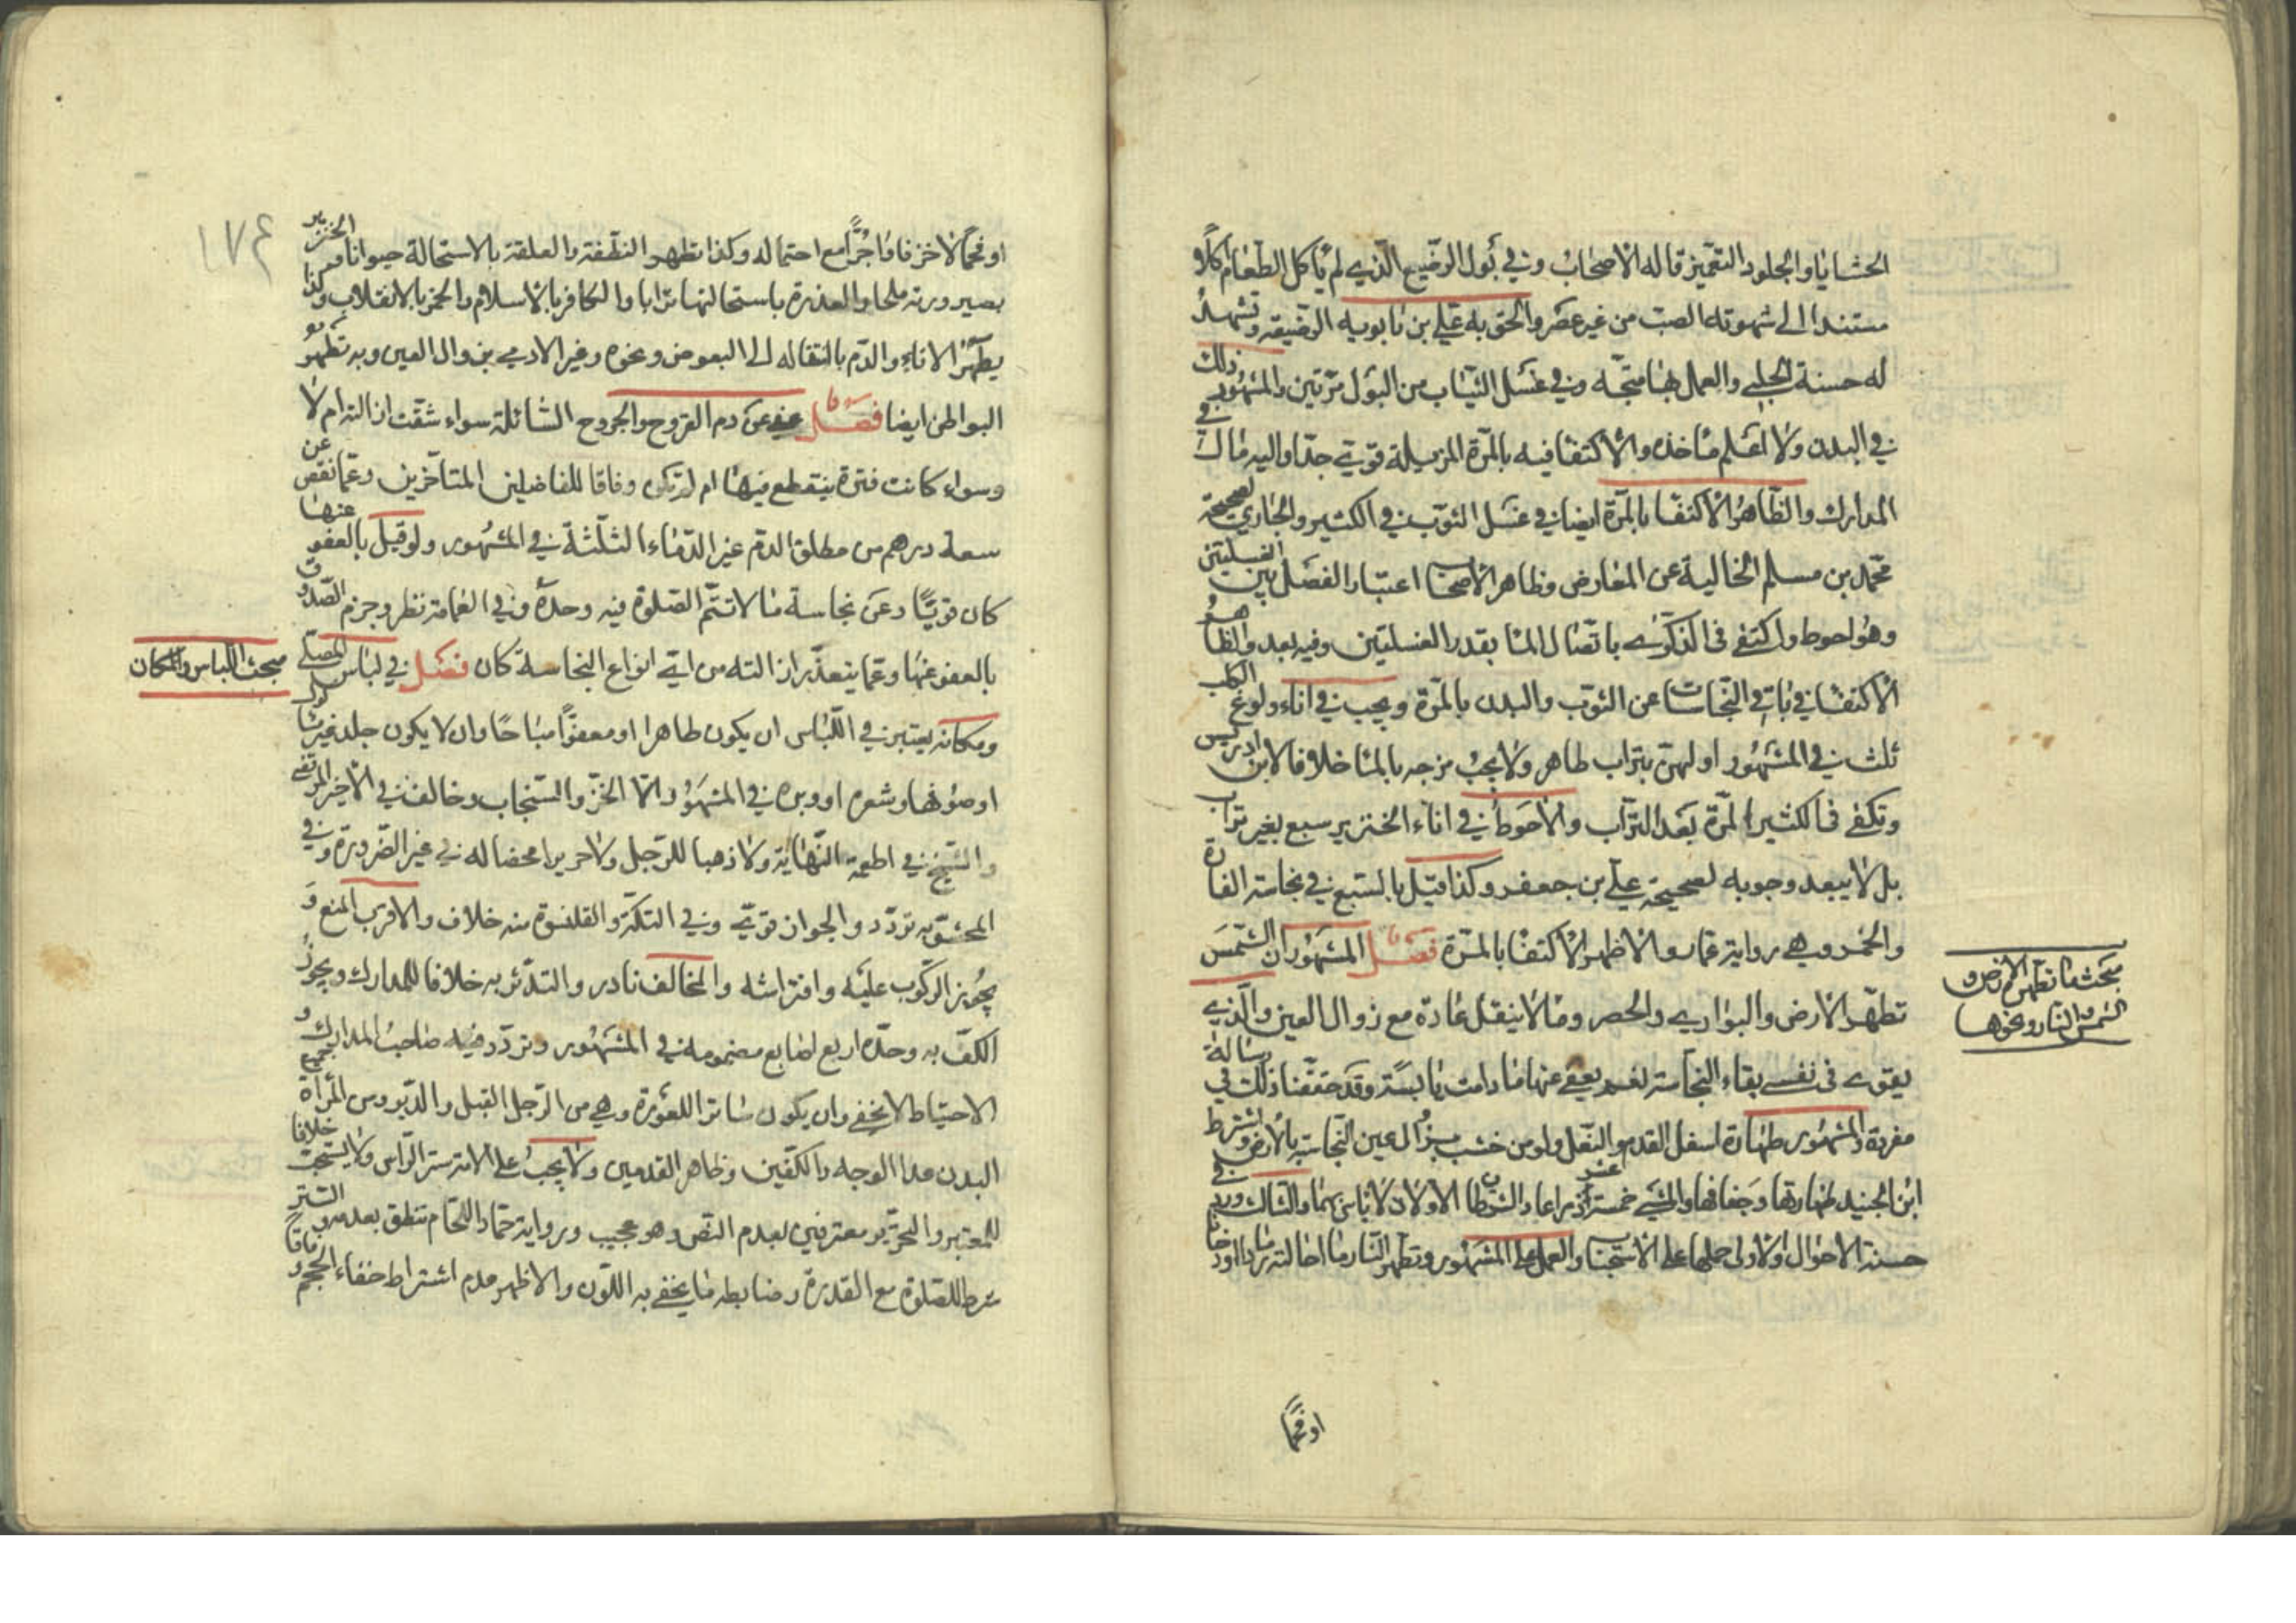 الحشايا والجلود التغميز قاله الاصحاب وفي بول الرضيع الذي لم ياكل الطعام اكلا
مستندا الى شهوته الصب من غير عصر والحق به علي بن بابويه الرضيعة وتشهد
له حسنة الحلبي والعمل بها متجه وفي غسل الثياب من البول مرتين والمشهور ذلك
في البدن ولا اعلم ماخذه والاكتفا فيه بالمرة المزيلة قوي جدا واليه مال في
المدارك والظاهر الاكتفا بالمرة ايضا في غسل الثوب في الكثير والجاري لصحيحة
محمد بن مسلم الخالية عن المعارض وظاهر الاصحاب اعتبار الفصل بين الغسلتين
وهو احوط واكتفى في الذكرى باتصال الما بقدر الغسلتين وفيه بعد والظاهر
الاكتفا في باقي النجاسات عن الثوب والبدن بالمرة ويجب في اناء ولوغ الكلب
ثلث في المشهور اولهن بتراب طاهر ولا يجب مزجه بالما خلافا لابن ادريس
وتكفى في الكثير المرة بعد التراب والاحوط في اناء الخنزير سبع بغير تراب
بل لا يبعد وجوبه لصحيحة علي بن جعفر وكذا قيل بالسبع في نجاسة الفارة
والخمر وهي رواية عمار والاظهر الاكتفا بالمرة فصل المشهور ان الشمس
تطهر الارض والبواري والحصر وما لا ينقل عادة مع زوال العين والذي
يقوى في نفسي بقاء النجاسة نعم يعفى عنها ما دامت يابسة وقد حققنا ذلك في رسالة
مفردة والمشهور طهارة اسفل القدم والنعل ولو من خشب بزوال عين النجاسة بالارض وشرط
ابن الجنيد طهارتها وجفافها والمشي خمسة عشر ذراعا والشرطان الاولان لا باس بهما والثالث ورد في
حسنة الاحوال والاولى حملها على الاستحباب والعمل على المشهور وتطهر النار ما احالته رمادا او دخانا
مبحث ما تطهره الارض و
الشمس والنار ونحوها
او فحما
١٧٤
او فحما لا خزفا واجرا مع احتماله وكذا تطهر النطفة والعلقة بالاستحالة حيوانا والخنزير
بصيرورته ملحا والعذرة باستحالتها ترابا والكافر بالاسلام والخمر بالانقلاب وكذا
يطهر الاناء والدم بانتقاله الى البعوض ونحوه وغير الادمي بزوال العين وبه تطهر
البواطن ايضا فصل عفي عن دم القروح والجروح السائلة سواء شقت ازالته ام لا
وسواء كانت فترة ينقطع فيها ام لم تكن وفاقا للفاضلين المتاخرين وعما نقص عن
سعة درهم من مطلق الدم غير الدماء الثلثة في المشهور ولو قيل بالعفو عنها
كان قويا وعن نجاسة ما لا تتم الصلوة فيه وحده وفي العمامة نظر وجزم الصدوق
بالعفو عنها وعما يتعذر ازالته من اي انواع النجاسة كان فصل في لباس المصلي
ومكانه يعتبر في اللباس ان يكون طاهرا او معفوا مباحا وان لا يكون جلد غير
او صوفها وشعره او وبره في المشهور الا الخز والسنجاب وخالف في الاخير المرتضى
والشيخ في اطعمة النهاية ولا ذهبا للرجل ولا حريرا محضا له في غير الضرورة وفي
المحشو به تردد والجواز قوي وفي التكة والقلنسوة منه خلاف والاقرب المنع و
يجوز الركوب عليه وافتراشه والمخالف نادر والتدثر به خلافا للمدارك ويجوز
الكف به وحده اربع اصابع مضمومة في المشهور وتردد فيه صاحب المدارك و
الاحتياط لا يخفى وان يكون ساترا للعورة وهي من الرجل القبل والدبر ومن المرأة جميع
البدن عدا الوجه والكفين وظاهر القدمين ولا يجب على الامة ستر الراس ولا يستحب خلافا
للمعتبر والتحرير معترفين بعدم النص وهو عجيب ورواية حماد اللحام تنطق بعدمه والستر
شرط للصلوة مع القدرة وضابطه ما يخفى به اللون والاظهر عدم اشتراط خفاء الحجم
مبحث اللباس والمكان